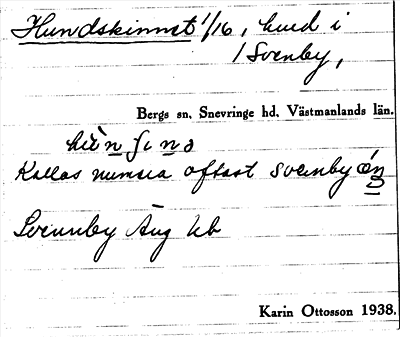 Hundskinnet 1/16, hmd i
1 Svenby,
Bergs sn. Snevringe hd. Västmanlands län.
Kallas numera oftast Svenby
Svennby Äng Ub
Karin Ottosson 1938.